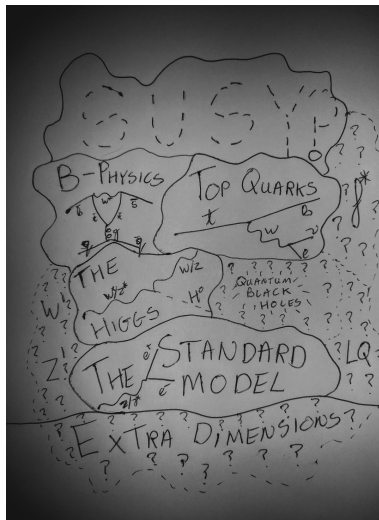 SUSY?
B-PHYSICS
TOP QUARKS
t
b
W
ν
e
THE
HIGGS
W/Z
W/Z*
H⁰
QUANTUM
BLACK
HOLES
W'
Z'
LQ
THE STANDARD
MODEL
e⁺
e⁻
Z/γ*
EXTRA DIMENSIONS